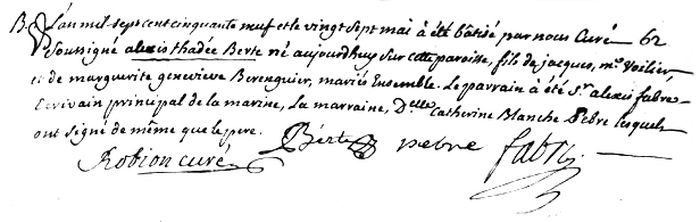 B. L'an mil sept cent cinquante neuf et le vingt sept mai à été bâtisé par nous Curé 62
Soussigné alexis thadée Berte né aujourdhuy sur cette paroisse, fils de jacques, m.e Voilier
et de marguerite genevieve Berenguier, mariés Ensemble. Le parrain à été Sr alexis fabre
Ecrivain principal de la marine, La marraine, D.elle Catherine Blanche Pebre lesquels
ont signé de même que le pere.
Berte pebre fabre
Robion curé